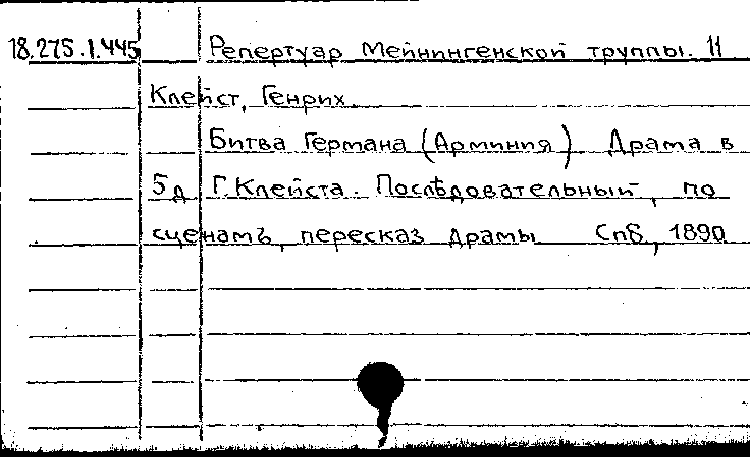 18.275.1.445 Репертуар Мейнингенской труппы. 11
Клейст, Генрих
Битва Германа (Арминия) Драма в
5 д Г. Клейста. Послѣдовательный, по
сценамъ, пересказ драмы Спб., 1890